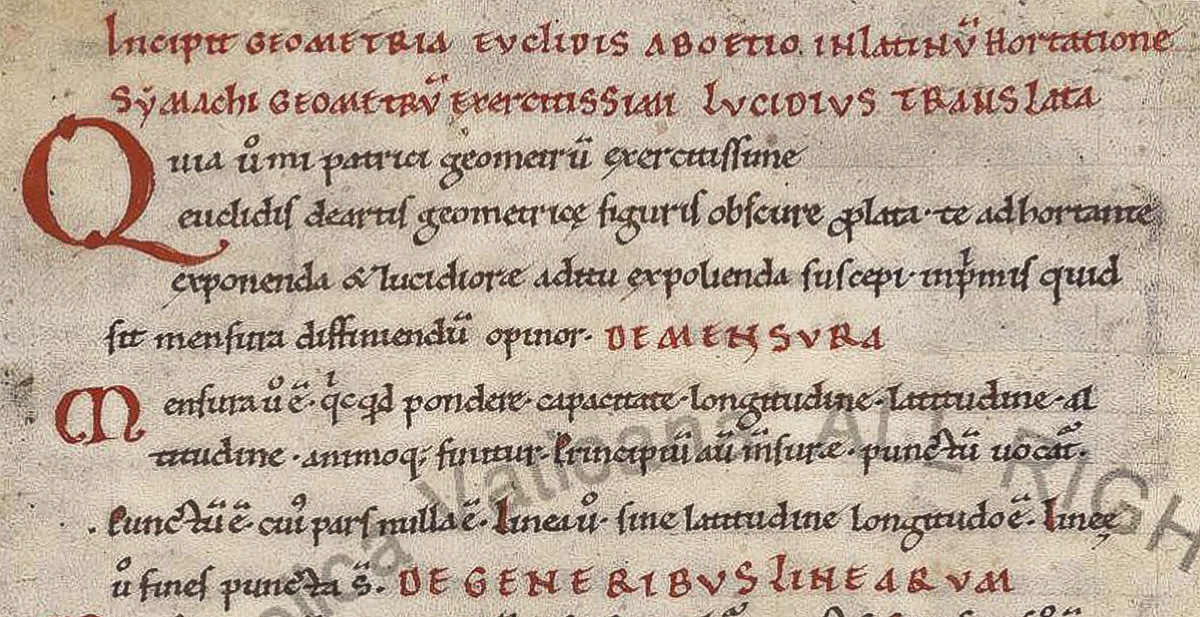 Incipit GEOMETRIA EVCLIDIS A BOETIO. IN LATINV̄ Hortatione
SẏMAchi GEOMETRV̄ Exercitissimi LVCIDIVS TRANSLata
Quia uͦ mi patrici geometrū exercitissime
euclidis deartis geometricę figuris obscure ꝓlata· te adhortante
exponenda & lucidioræ aditu expolienda suscepi· inpͥmis quid
sit mensura diffiniendū opinor· DE MENSVRA
Mensura uͦ ē· qͥcqͥd pondere· capacitate· longitudine· latitudine· al
titudine· animoq; finitur· Principiū aū m̄suræ· punctū uocat̄·
Punctū ē· cui᾽ pars nulla ē· Linea uͦ· sine latitudine longitudo ē· Lineę
uͦ fines puncta s̄· DE GENERIBVS LINEARVM
Vaticana ALL RIGH